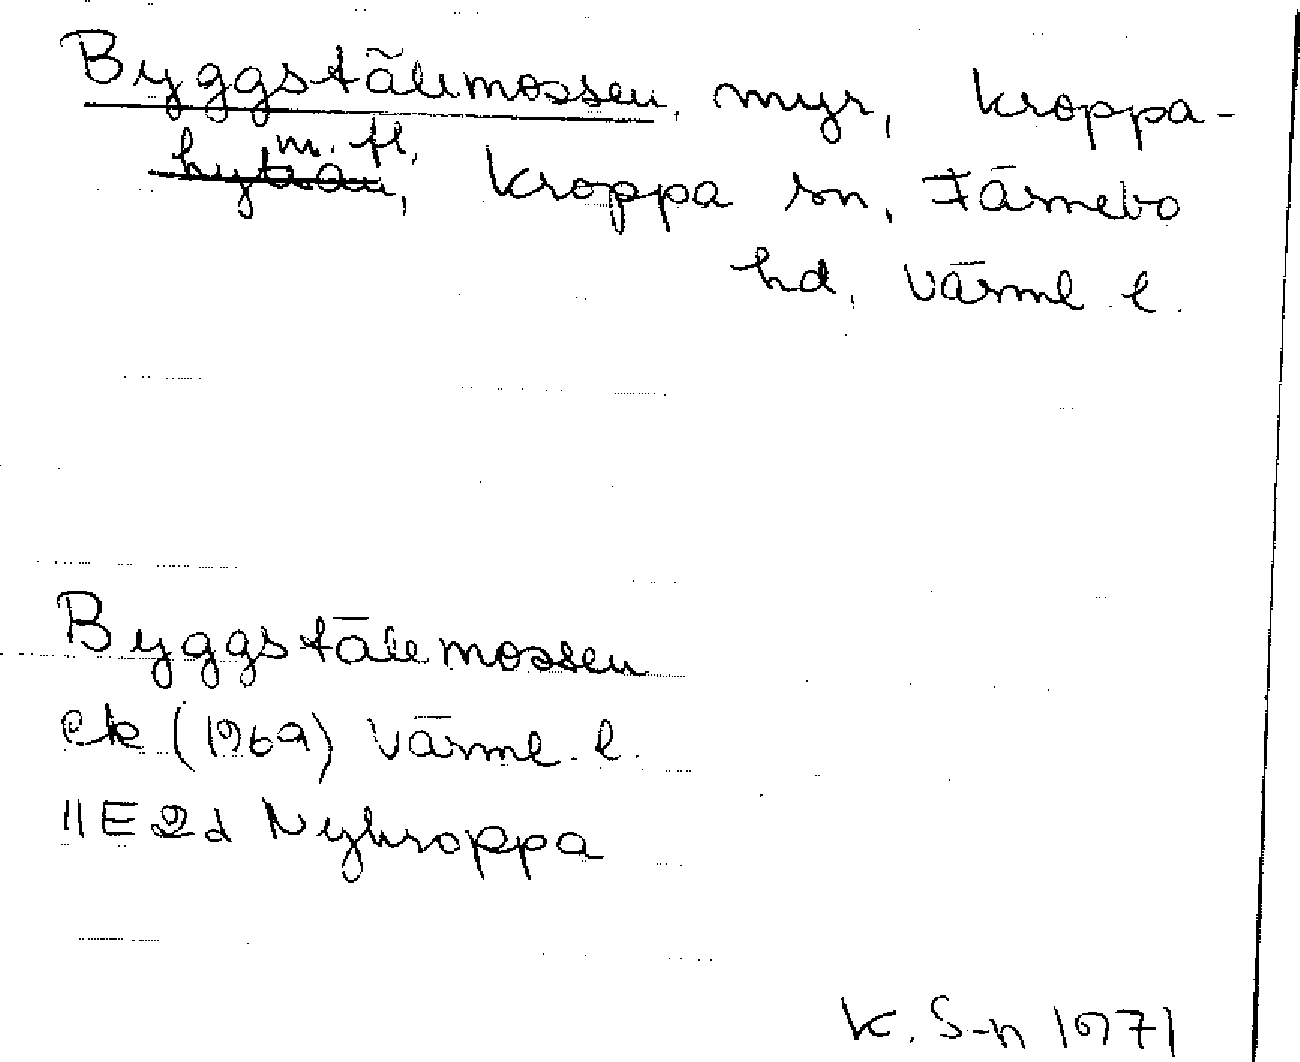 Byggställemossen, myr, Kroppa-
hyttan, m. fl., Kroppa sn, Färnebo
hd, Värml. l.
Byggställemossen
ek (1969) Värml. l.
11E2d Nykroppa
K. S-n 1971